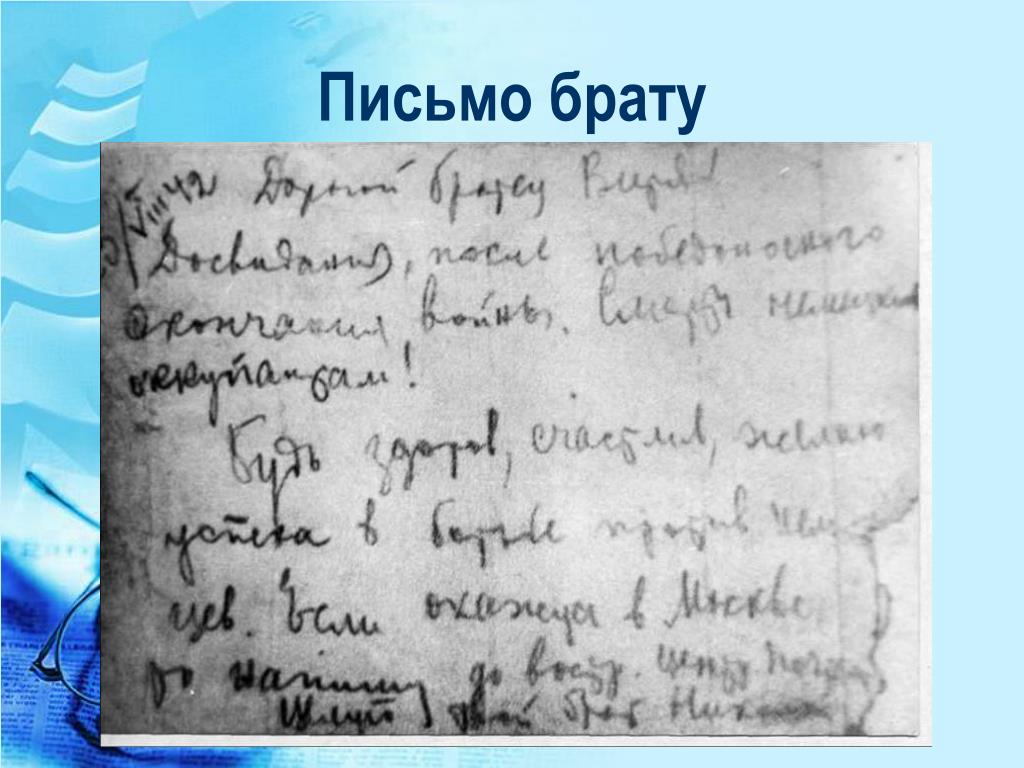 Письмо брату
VIII 42 Дорогой братец Витя!
Досвидания, после победоносного
окончания войны. Смерть немецким
оккупантам!
Будь здоров, счастлив, желаю
успеха в борьбе против нем
цев. Если окажусь в Москве,
то напишу до востр. Центр. Почта
твой брат